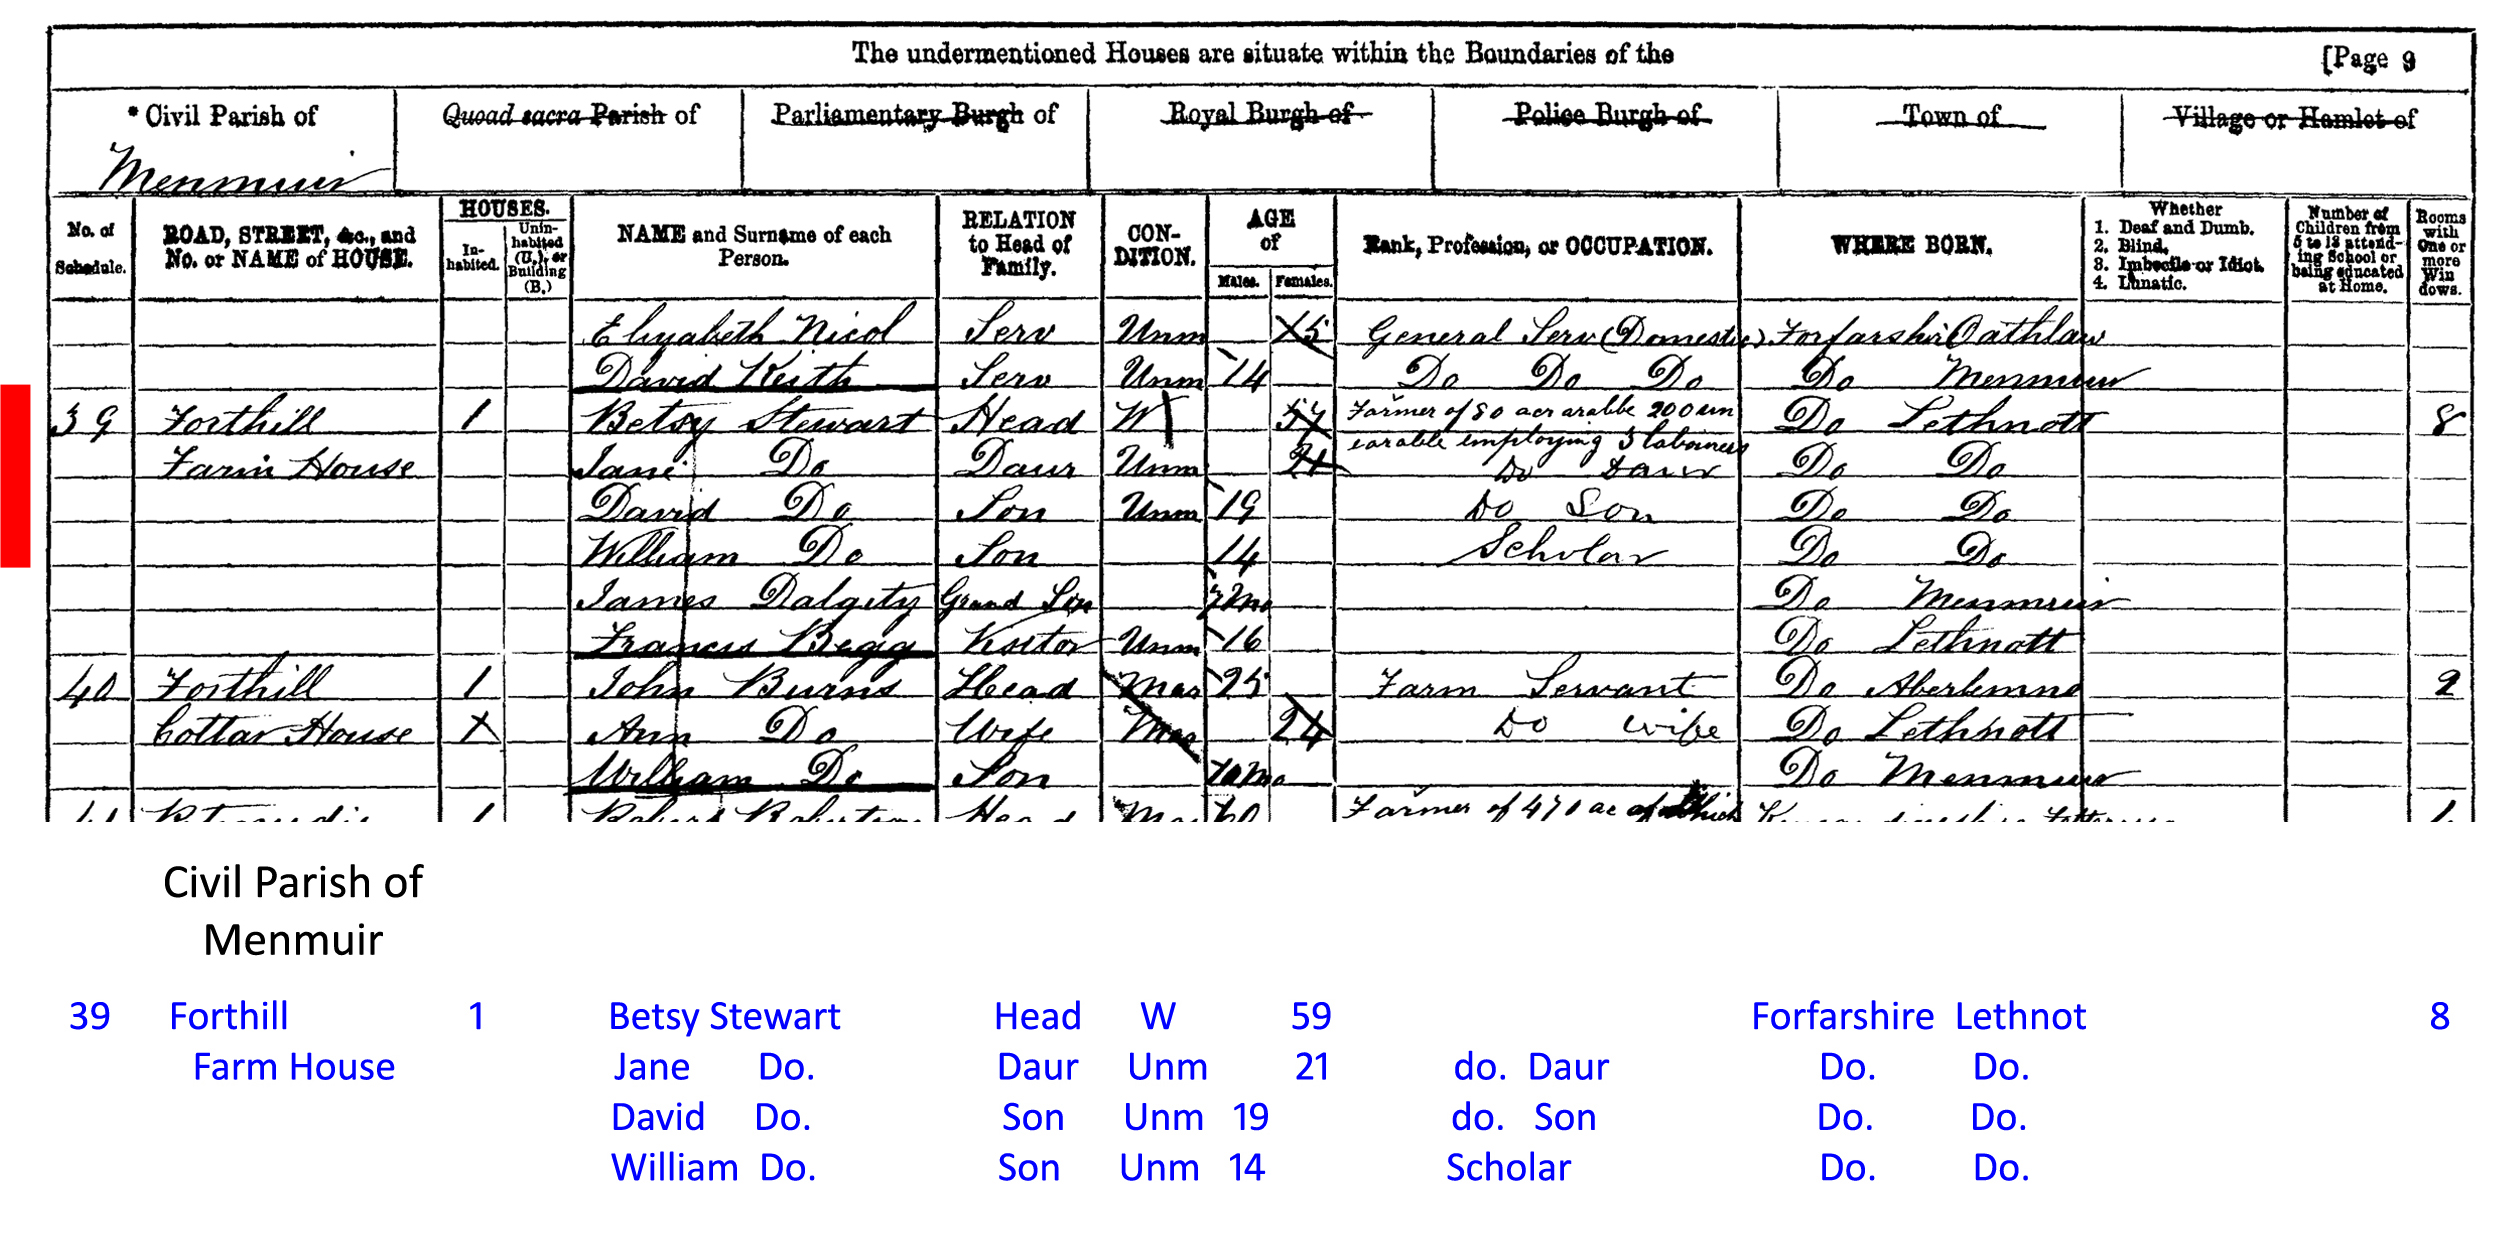 The undermentioned Houses are situate within the Boundaries of the [Page 9
* Civil Parish of Quoad sacra Parish of Parliamentary Burgh of Royal Burgh of Police Burgh of Town of Village or Hamlet of
Menmuir
No. of Schedule. ROAD, STREET, &c., and No. or NAME of HOUSE. HOUSES. In-habited. Unin-habited (U.), or Building (B.) NAME and Surname of each Person. RELATION to Head of Family. CON-DITION. AGE of Males. Females. Rank, Profession, or OCCUPATION. WHERE BORN. Whether 1. Deaf and Dumb. 2. Blind. 3. Imbecile or Idiot. 4. Lunatic. Number of Children from 5 to 13 attend-ing School or being educated at Home. Rooms with One or more Win dows.
Elizabeth Nicol Serv Unm 15 General Serv (Domestic) Forfarshir Oathlaw
David Keith Serv Unm 14 Do Do Do Do Menmuir
39 Forthill 1 Betsy Stewart Head W Farmer of 80 acr arable 200 un Do Lethnott 8
earable employing 3 labourers
Farm House Jane Do Daur Unm 21 Do Daur Do Do
David Do Son Unm 19 Do Son Do Do
William Do Son 14 Scholar Do Do
James Dalgity Grand Son Do Menmuir
Francis Begg Visitor Unm 16 Do Lethnott
40 Forthill 1 John Burns Head Mar 25 Farm Servant Do Aberlemno 2
Cottar House Ann Do Wife Mar 24 Do wife Do Lethnott
William Do Son 10mo Do Menmuir
41 1 Robert Robertson Head Mar Farmer of 470 ac of which
Civil Parish of
Menmuir
39 Forthill 1 Betsy Stewart Head W 59 Forfarshire Lethnot 8
Farm House Jane Do. Daur Unm 21 do. Daur Do. Do.
David Do. Son Unm 19 do. Son Do. Do.
William Do. Son Unm 14 Scholar Do. Do.